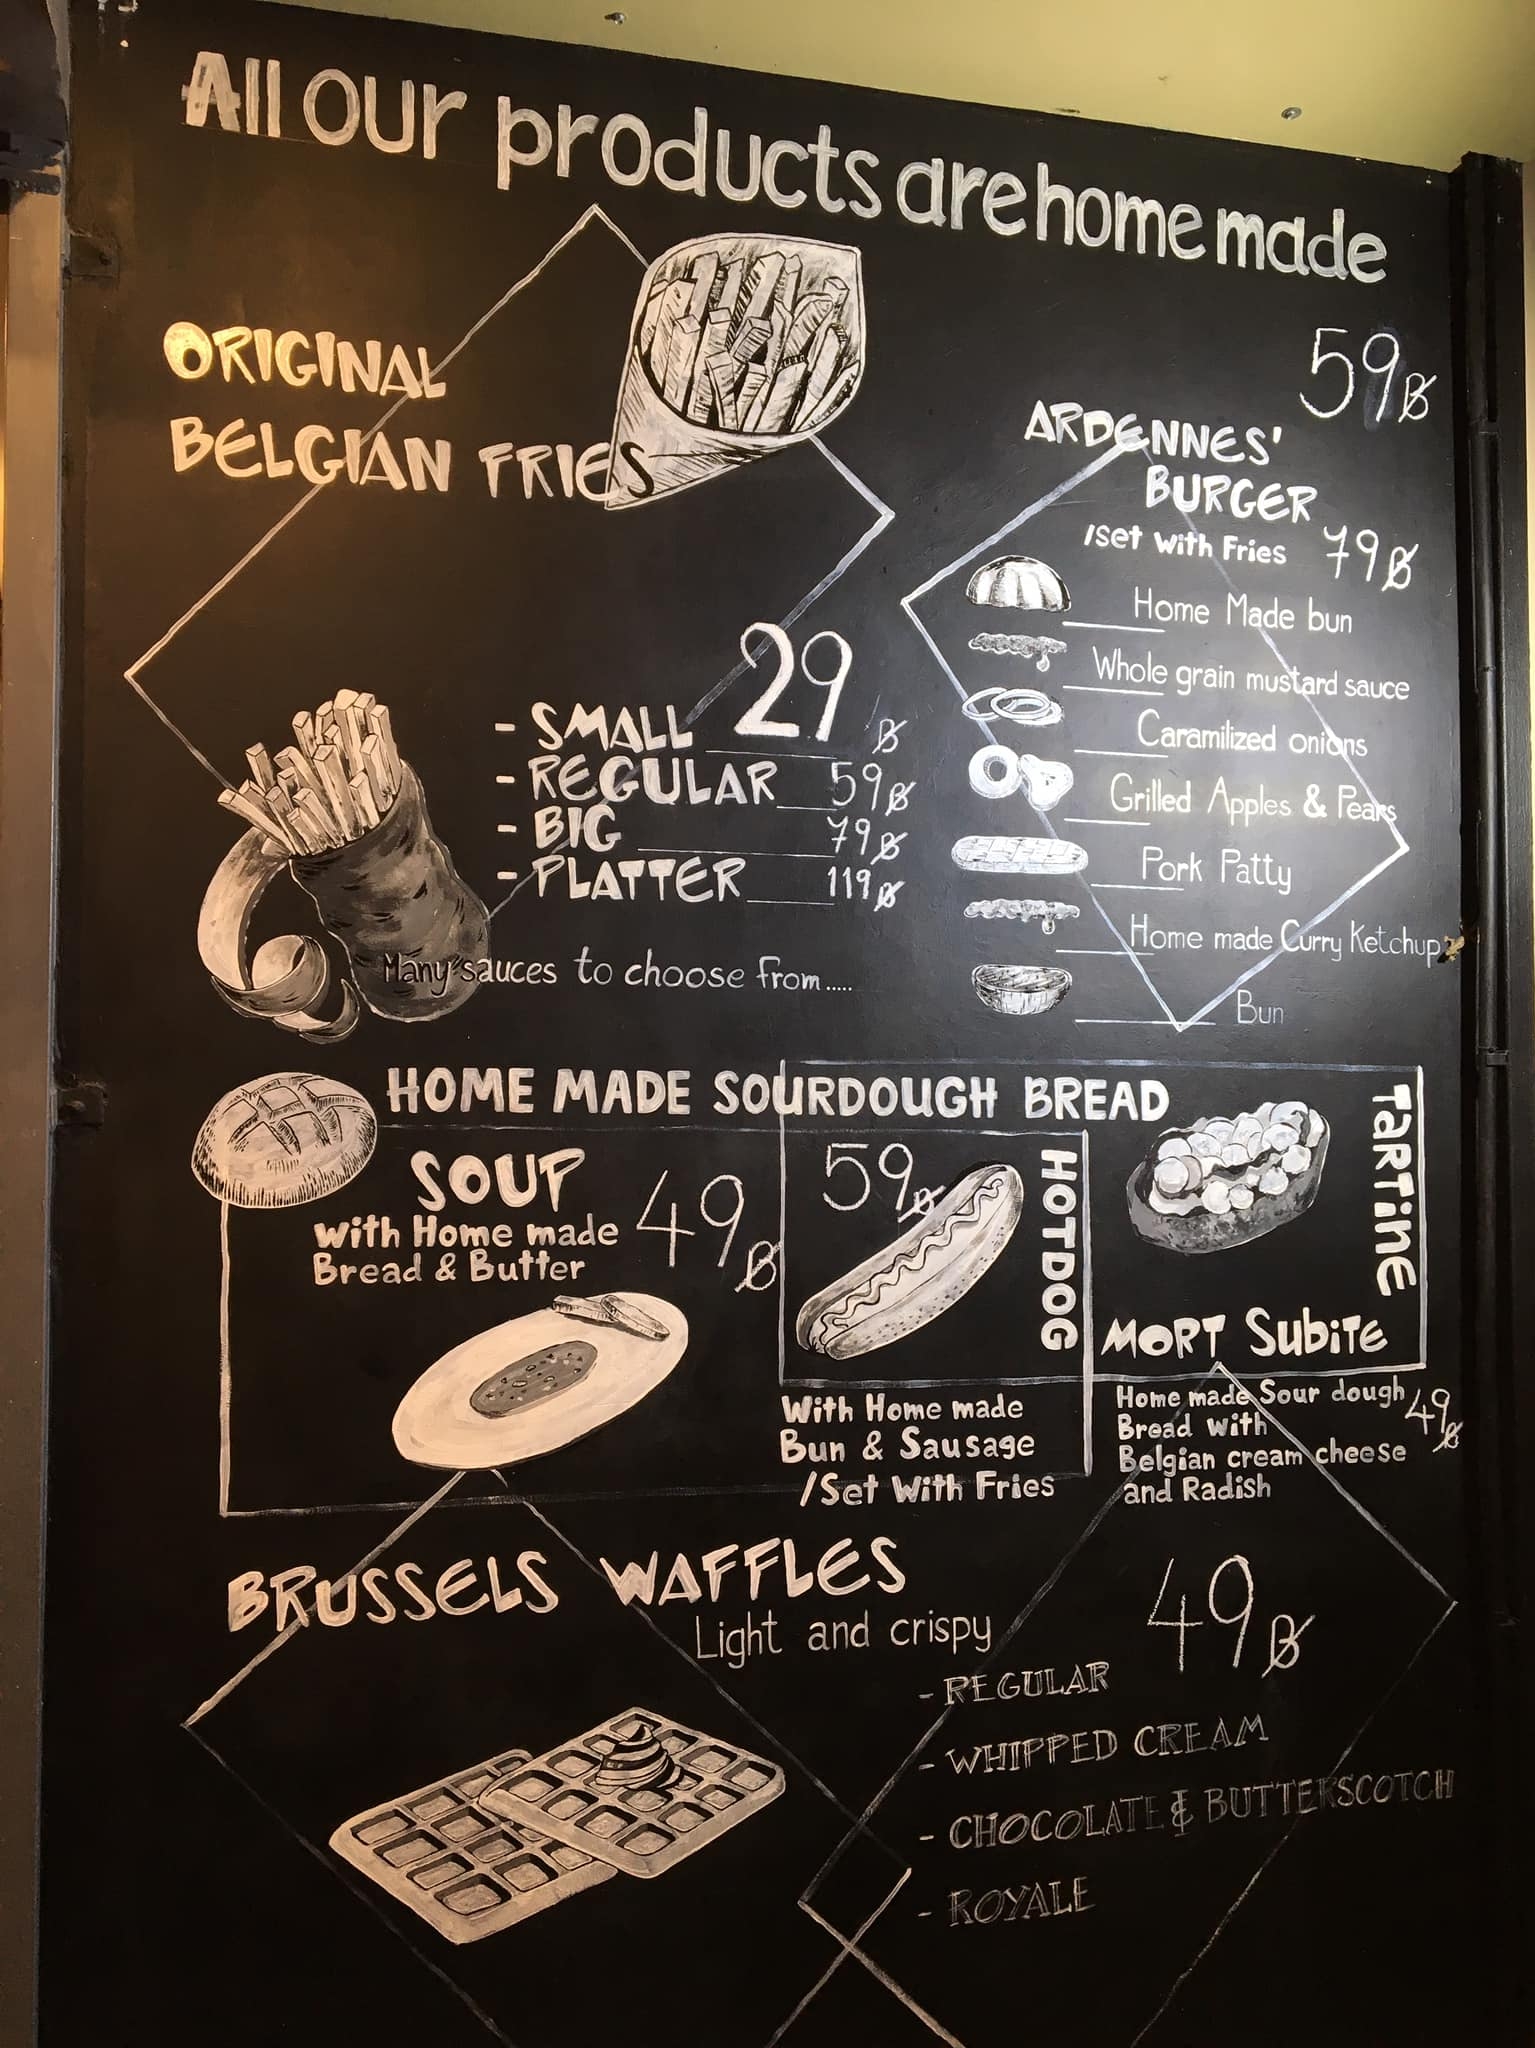 All our products are home made
ORIGINAL
BELGIAN FRIES
- SMALL 29 ฿
- REGULAR 59฿
- BIG 79฿
- PLATTER 119฿
Many sauces to choose from.....
59฿
ARDENNES'
BURGER
/set with Fries 79฿
Home Made bun
Whole grain mustard sauce
Caramilized onions
Grilled Apples & Pears
Pork Patty
Home made Curry Ketchup
Bun
HOME MADE SOURDOUGH BREAD
SOUP 49฿
with Home made
Bread & Butter
59฿
HOTDOG
With Home made
Bun & Sausage
/Set With Fries
TARTINE
MORT SUBITE
Home made Sour dough 49฿
Bread with
Belgian cream cheese
and Radish
BRUSSELS WAFFLES
Light and crispy
49฿
- REGULAR
- WHIPPED CREAM
- CHOCOLATE & BUTTERSCOTCH
- ROYALE